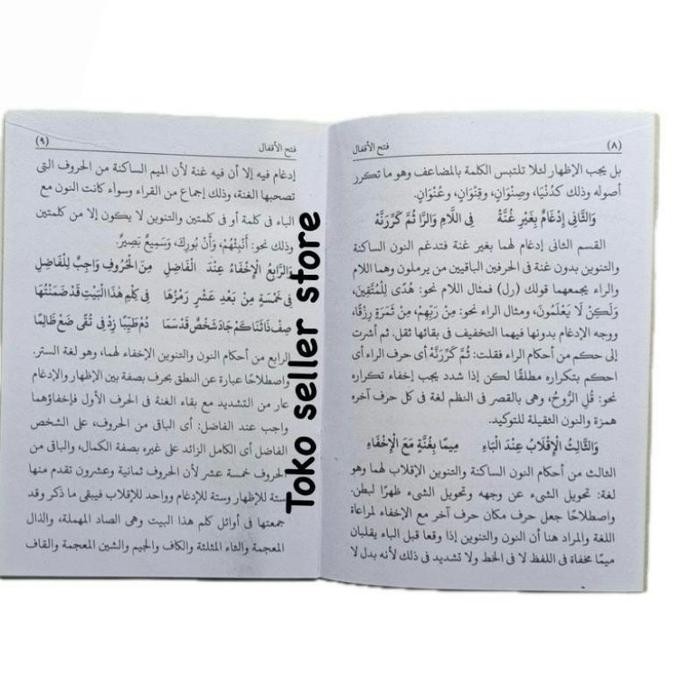 (٨)
فتح الأقفال
بل يجب الإظهار لئلا تلتبس الكلمة بالمضاعف وهو ما تكرر
أصوله وذلك كدُنْيَا، وصِنْوَان، وقِنْوَان، وعُنْوَان.
وَالثَّانِى إِدْغَامٌ بِغَيْرِ غُنَّهْ فِى اللَّامِ وَالرَّا ثُمَّ كَرِّرَنَّهْ
القسم الثانى إدغام لهما بغير غنة فتدغم النون الساكنة
والتنوين بدون غنة فى الحرفين الباقيين من يرملون وهما اللام
والراء يجمعهما قولك (رل) فمثال اللام نحو: هُدًى لِلْمُتَّقِينَ،
وَلَكِنْ لَا يَعْلَمُونَ، ومثال الراء نحو: مِنْ رَبِّهِمْ، مِنْ ثَمَرَةٍ رِزْقًا،
ووجه الإدغام بدونها فيهما التخفيف فى بقائها ثقل. ثم أشرت
إلى حكم من أحكام الراء فقلت: ثُمَّ كَرِّرَنَّهْ أى حرف الراء أى
احكم بتكراره مطلقًا لكن إذا شدد يجب إخفاء تكراره
نحو: قُلِ الرُّوحُ، وهى بالقصر فى النظم لغة فى كل حرف آخره
همزة والنون الثقيلة للتوكيد.
وَالثَّالِثُ الْإِقْلَابُ عِنْدَ الْبَاءِ مِيمًا بِغُنَّةٍ مَعَ الْإِخْفَاءِ
الثالث من أحكام النون الساكنة والتنوين الإقلاب لهما وهو
لغة: تحويل الشىء عن وجهه وتحويل الشىء ظهرًا لبطن.
واصطلاحًا جعل حرف مكان حرف آخر مع الإخفاء لمراعاة
اللغة والمراد هنا أن النون والتنوين إذا وقعا قبل الباء يقلبان
ميمًا مخفاة فى اللفظ لا فى الخط ولا تشديد فى ذلك لأنه بدل لا
فتح الأقفال
(٩)
إدغام فيه إلا أن فيه غنة لأن الميم الساكنة من الحروف التى
تصحبها الغنة، وذلك إجماع من القراء وسواء كانت النون مع
الباء فى كلمة أو فى كلمتين والتنوين لا يكون إلا من كلمتين
وذلك نحو: أَنْبِئْهُمْ، وَأَنْ بُورِكَ، وَسَمِيعٌ بَصِيرٌ.
وَالرَّابِعُ الْإِخْفَاءُ عِنْدَ الْفَاضِلِ مِنَ الْحُرُوفِ وَاجِبٌ لِلْفَاضِلِ
فِى خَمْسَةٍ مِنْ بَعْدِ عَشْرٍ رَمْزُهَا فِى كِلْمِ هَذَا الْبَيْتِ قَدْ ضَمَّنْتُهَا
صِفْ ذَا ثَنَا كَمْ جَادَ شَخْصٌ قَدْ سَمَا دُمْ طَيِّبًا زِدْ فِى تُقًى ضَعْ ظَالِمَا
الرابع من أحكام النون والتنوين الإخفاء لهما، وهو لغة الستر.
واصطلاحًا عبارة عن النطق بحرف بصفة بين الإظهار والإدغام
عار من التشديد مع بقاء الغنة فى الحرف الأول فإخفاؤهما
واجب عند الفاضل: أى الباقى من الحروف، على الشخص
الفاضل أى الكامل الزائد على غيره بصفة الكمال، والباقى من
الحروف خمسة عشر لأن الحروف ثمانية وعشرون تقدم منها
ستة للإظهار وستة للإدغام وواحد للإقلاب فيبقى ما ذكر وقد
جمعتها فى أوائل كلم هذا البيت وهى الصاد المهملة، والذال
المعجمة والثاء المثلثة والكاف والجيم والشين المعجمة والقاف
Toko seller store